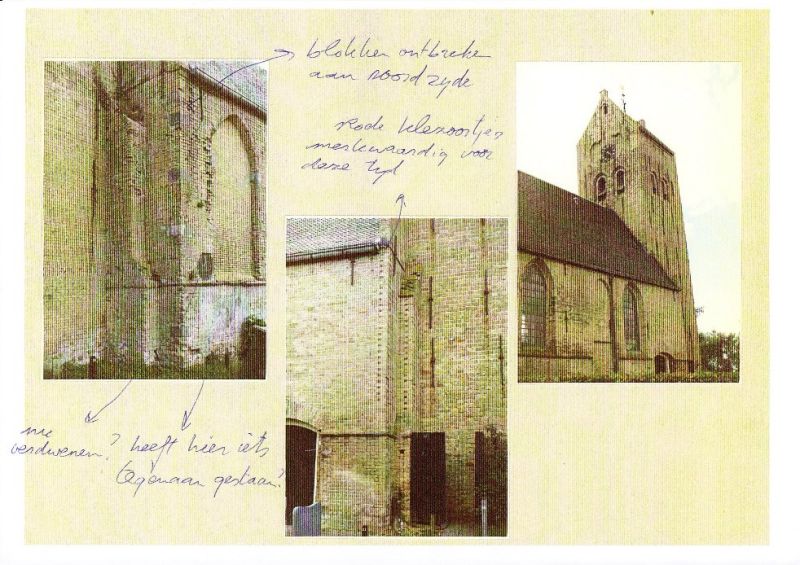 blokken ontbreke
aan noordzyde
Rode klezoostjes
merkwaardig voor
deze tyd
nu
verdwenen?
heeft hier iets
tegenaan gestaan?